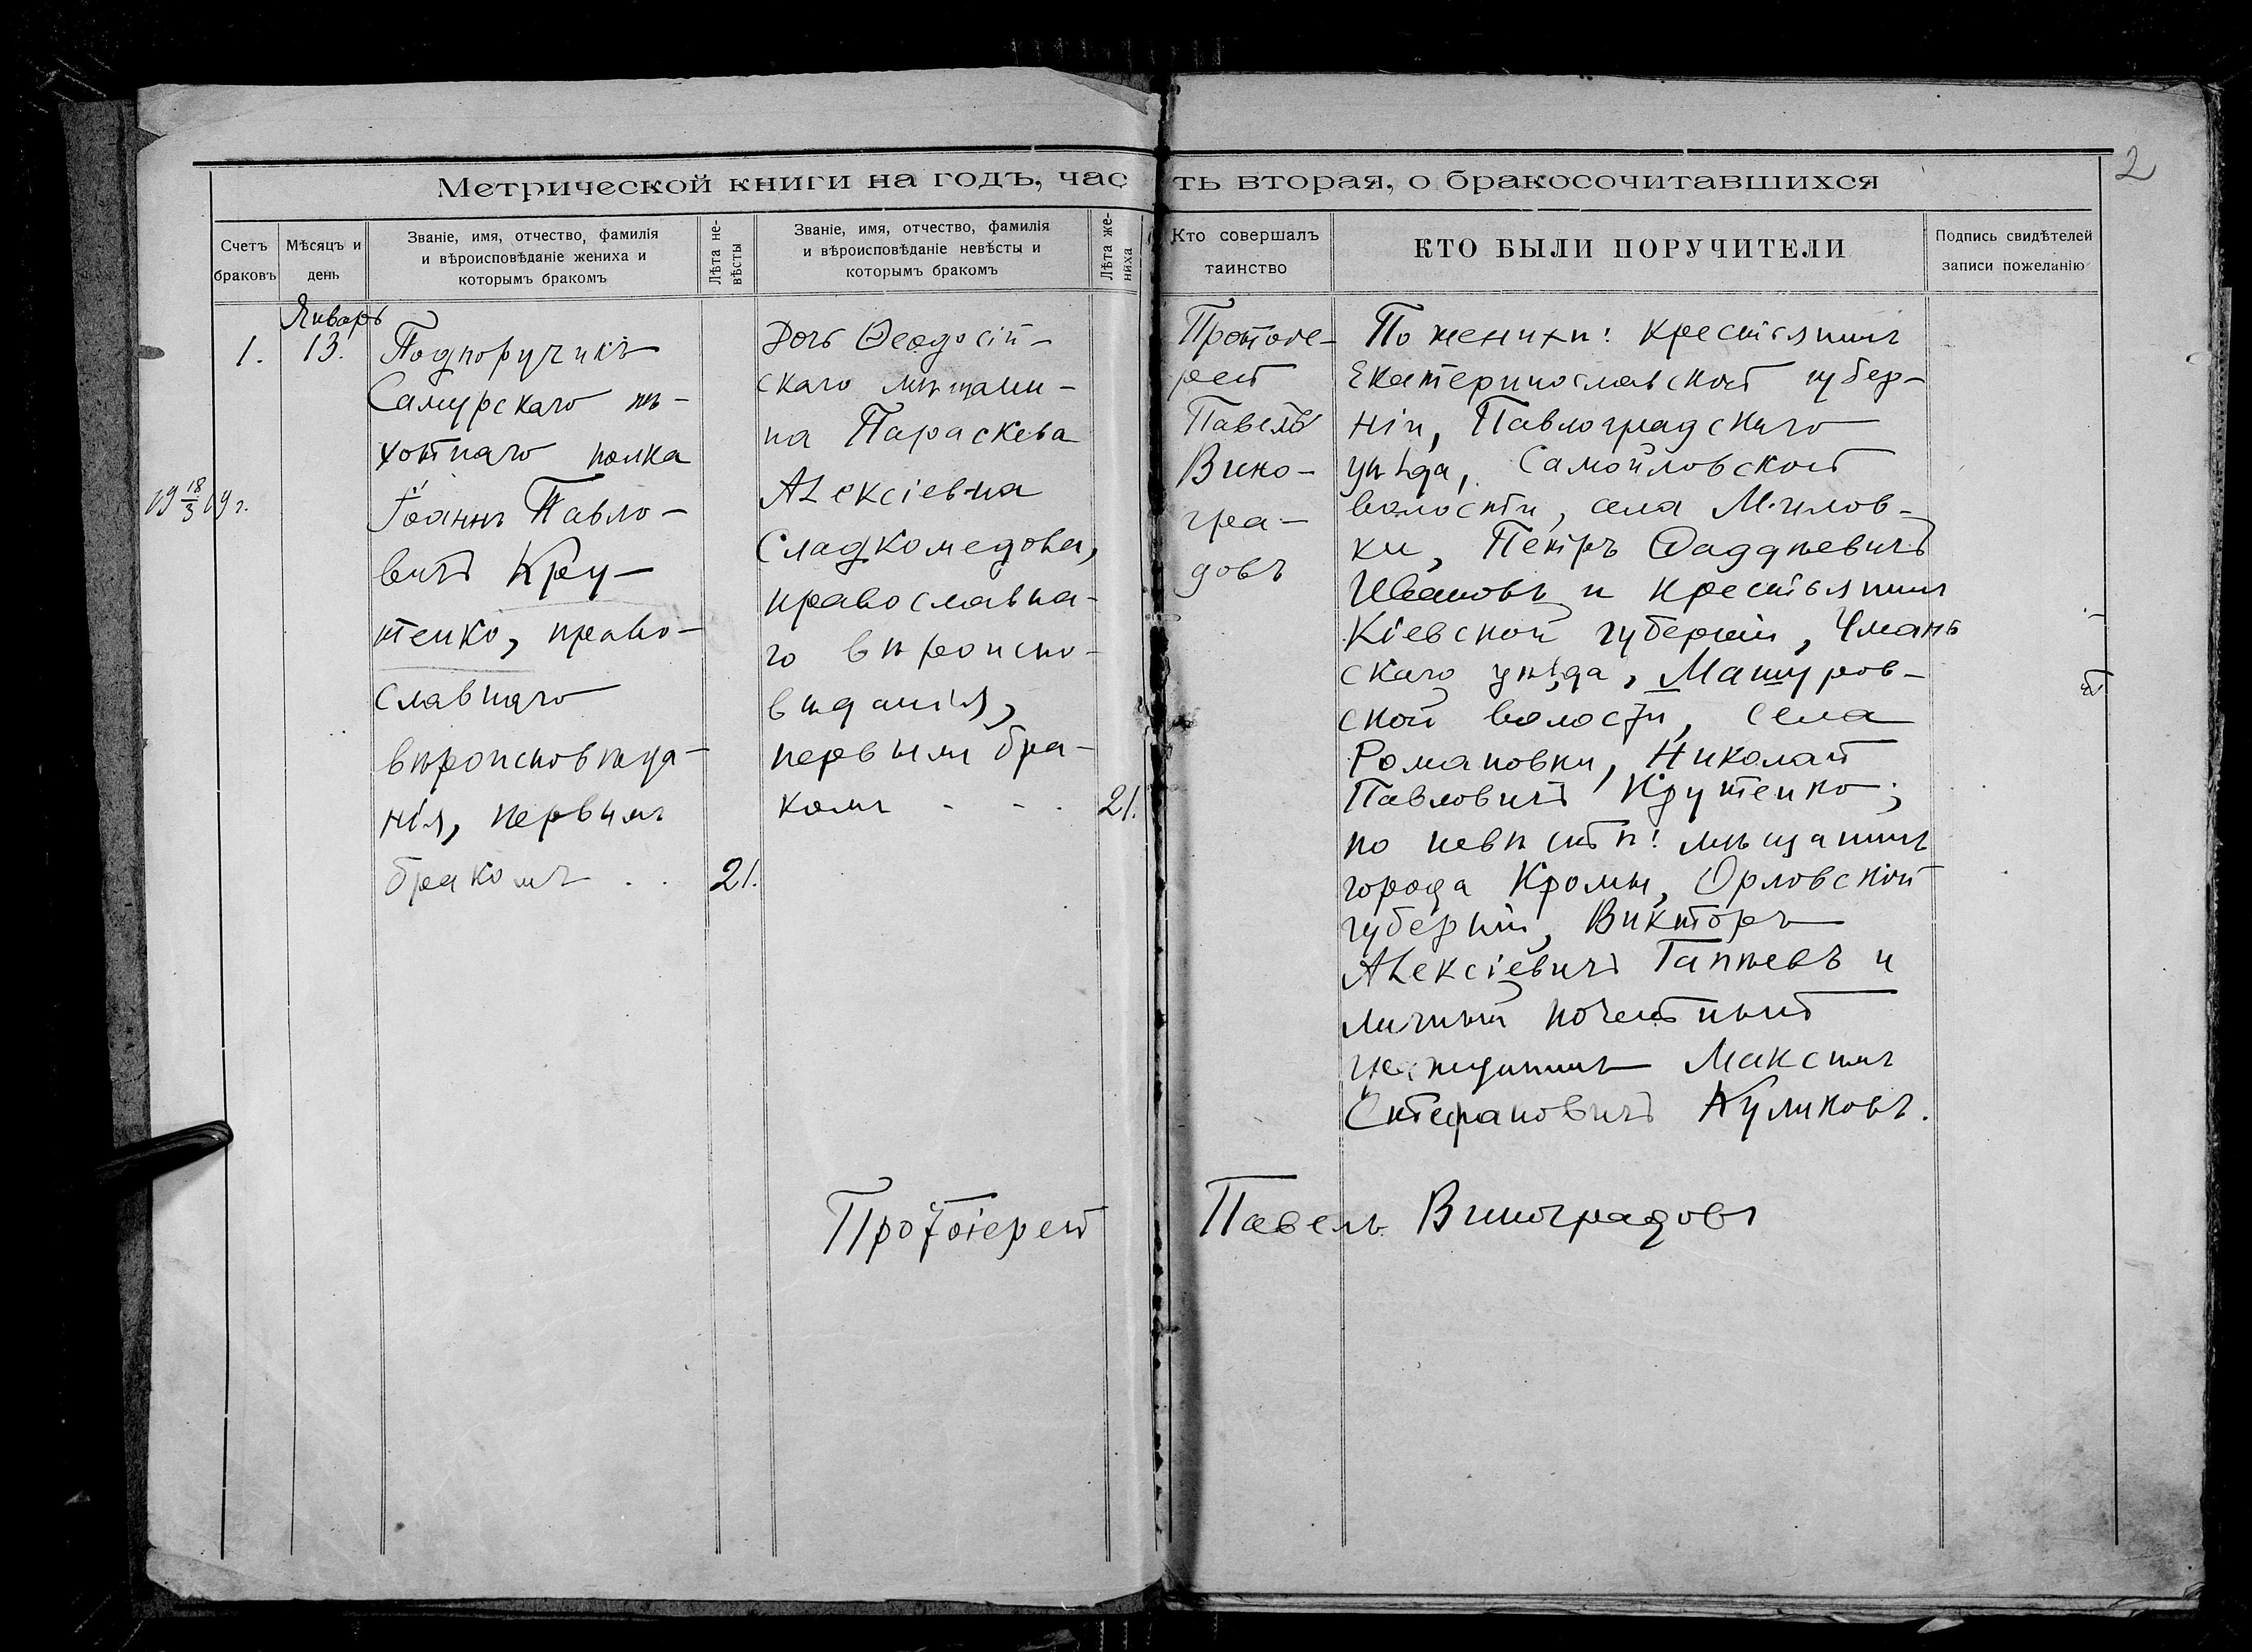 2
Метрической книги на годъ, часть вторая, о бракосочитавшихся
Счетъ браковъ
Мѣсяцъ и день
Званіе, имя, отчество, фамилія и вѣроисповѣданіе жениха и которымъ бракомъ
Лѣта невѣсты
Званіе, имя, отчество, фамилія и вѣроисповѣданіе невѣсты и которымъ бракомъ
Лѣта жениха
Кто совершалъ таинство
КТО БЫЛИ ПОРУЧИТЕЛИ
Подпись свидѣтелей записи пожеланію
1.
Январь
13.
19 18/3 19 г.
Подпоручикъ
Самурскаго пѣ-
хотнаго полка
Іоаннъ Павло-
вичъ Кру-
тенко, право-
славнаго
вѣроисповѣда-
нія, первымъ
бракомъ . . 21.
Дочь Ѳеодосій-
скаго мѣщани-
на Параскева
Алексіевна
Сладкомедова,
православна-
го вѣроиспо-
вѣданія,
первымъ бра-
комъ - - . 21.
Протоіе-
рей
Павелъ
Вино-
гра-
довъ
По женихѣ: крестьянинъ
Екатеринославской губер-
ніи, Павлоградскаго
уѣзда, Самойловской
волости, села Милов-
ки, Петръ Ѳаддѣевичъ
Ивановъ и крестьянинъ
Кіевской губерніи, Умань
скаго уѣзда, Машуров-
ской волости, села
Романовки, Николай
Павловичъ Крутенко;
по невѣстѣ: мѣщанинъ
города Кромы, Орловской
губерніи, Викторъ
Алексіевичъ Гаппѣевъ и
личный почетный
гражданинъ Максимъ
Стефановичъ Куликовъ.
Протоіерей Павелъ Виноградовъ